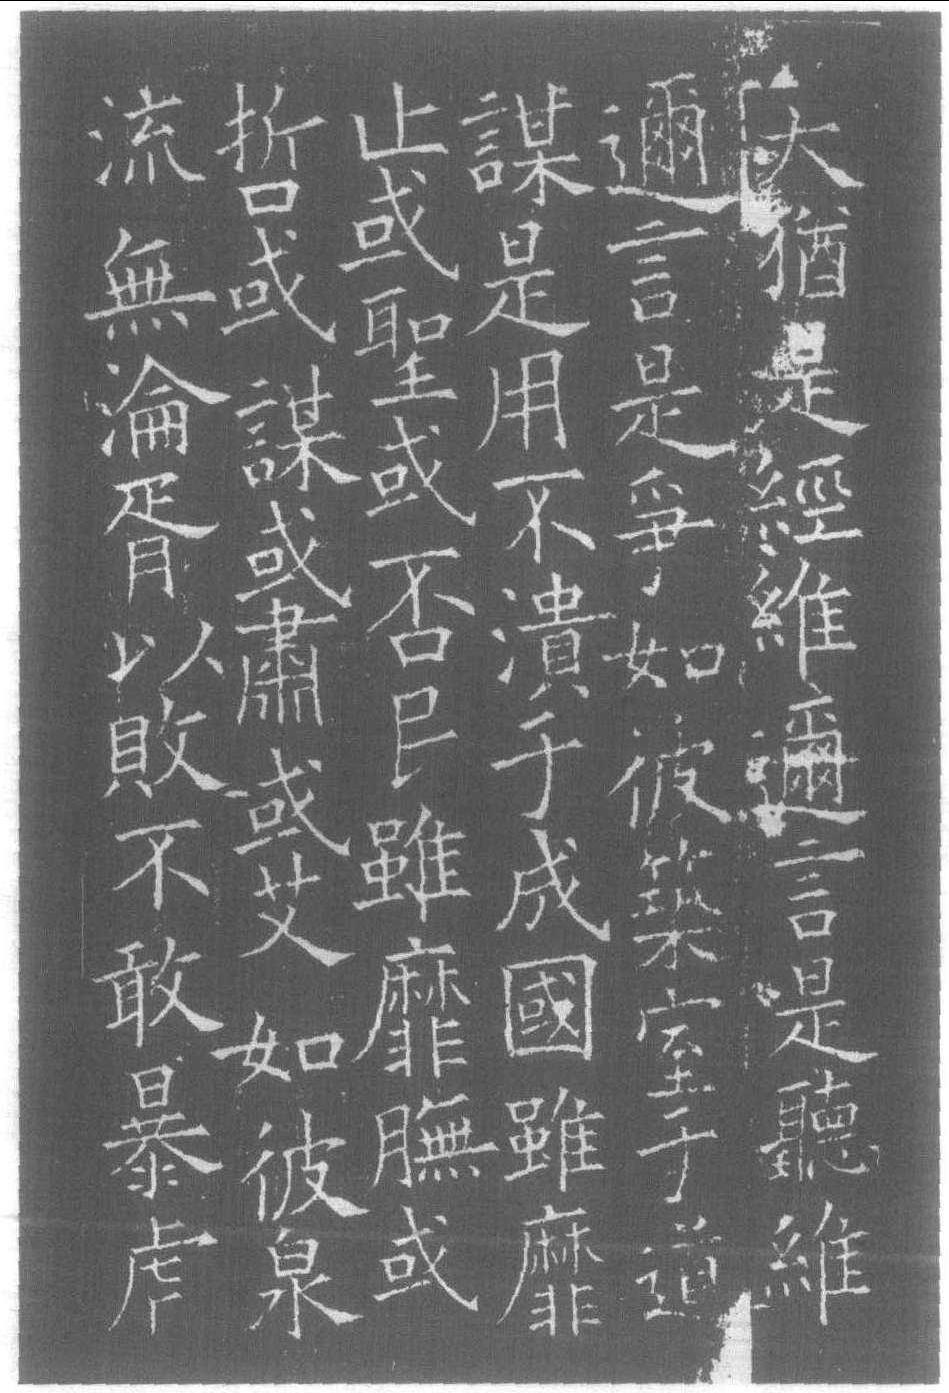 大猶是經維邇言是聽維
邇言是爭如彼築室于道
謀是用不潰于成國雖靡
止或聖或否民雖靡膴或
哲或謀或肅或艾如彼泉
流無淪胥以敗不敢暴虎